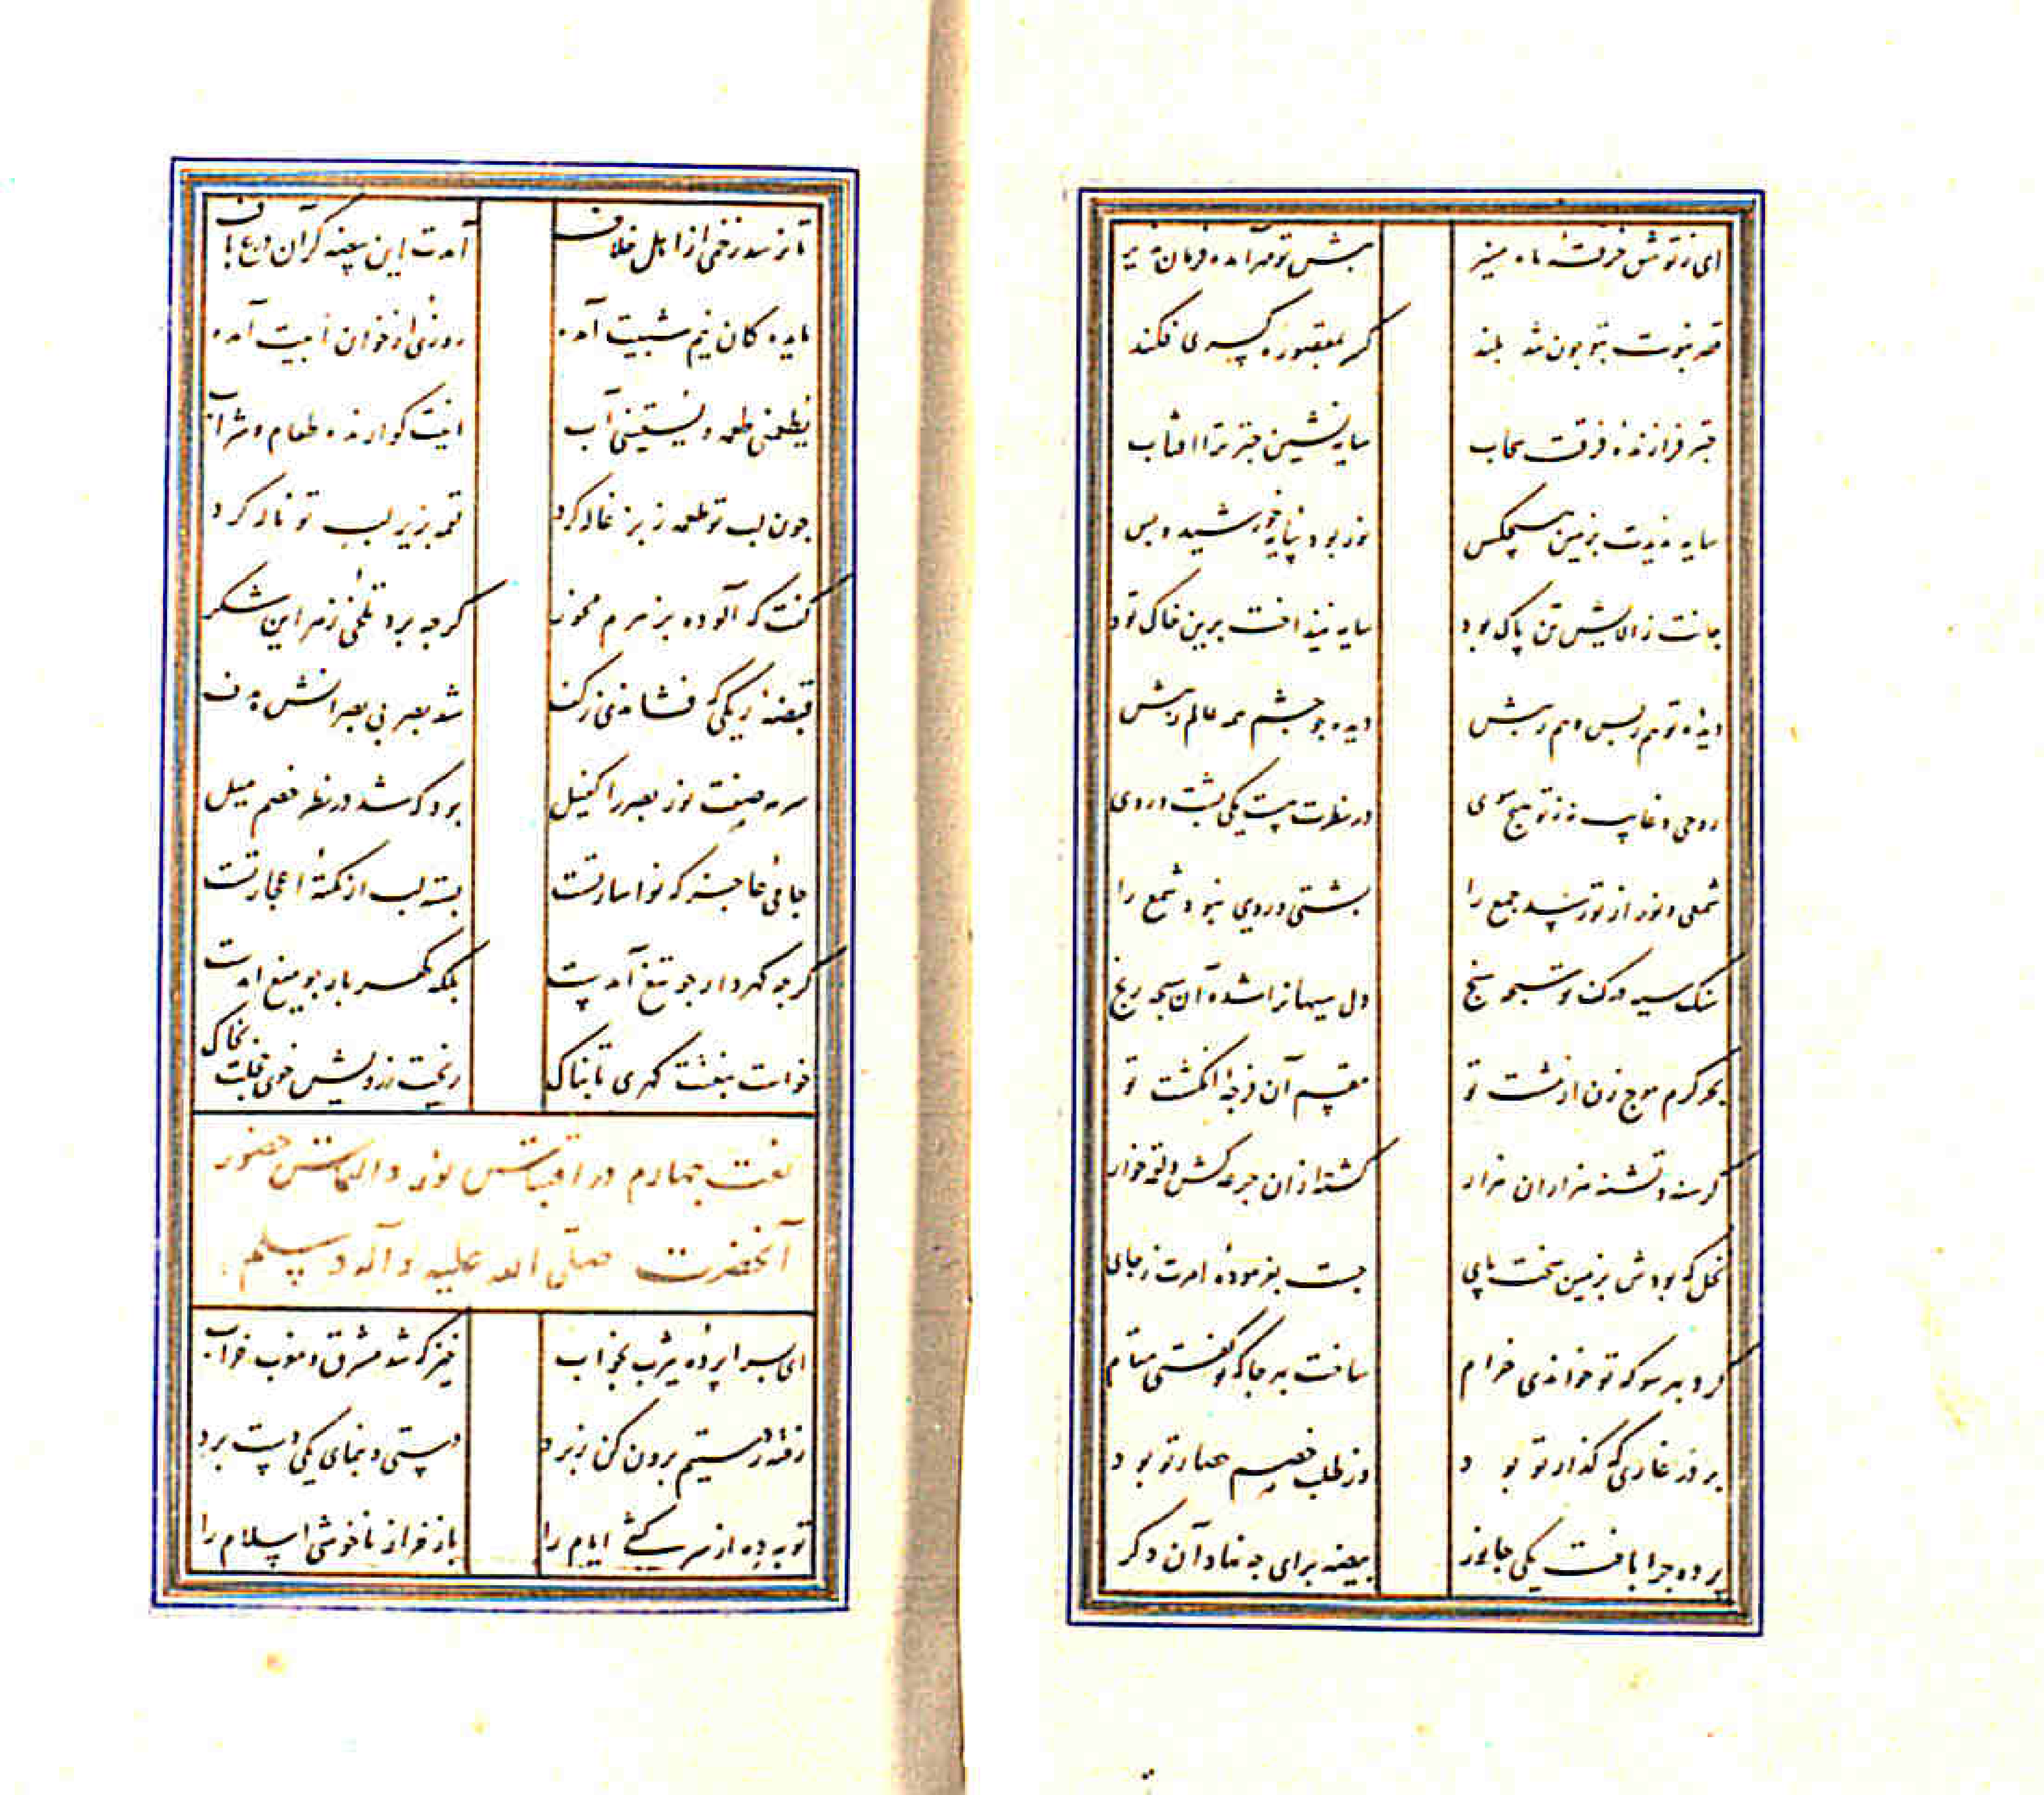 ای ز تو شق خرقهٔ ماه منیر پیش تو مهر آمده فرمان پذیر
قصر نبوت بتو چون شد بلند کسر بمقصورهٔ کسری فکند
چتر فرازندهٔ فرقت سحاب سایه نشین چتر ترا افتاب
سایه ندیدت بزمین هیچکس نور بود پایهٔ خورشید و بس
جانت ز الایش تن پاک بود سایه نینداخت برین خاک تود
دیدهٔ تو هم ز پس و هم ز پیش دیده چو چشم همه عالم ز پیش
روحی و غایب نه ز تو هیچ سوی در نظرت هست یکی پشت و روی
شمعی و نور از تو رسد جمع را پشتی و رویی نبود شمع را
سنک سیه در کف تو سبحه سنج دل سیهانرا شده آن سبحه رنج
بحر کرم موج زن از مشت تو مقسم آن فرجهٔ انکشت تو
کرسنه و تشنه هزاران هزار کشته ازان جرعه کش و لقمه خوار
نخل که بودش بزمین سخت پای جست بفرمودهٔ امرت ز جای
کرد بهر سو که تو خواندی خرام ساخت بهر جا که تو کفتی مقام
بر در غاری که گذار تو بود در طلب خصم حصار تو بود
پرده چرا بافت یکی جانور بیضه برای چه نهاد آن دکر
تا نرسد زخمی از اهل خلاف آمدت این بیضه کر آن درع باف
مایده کان نیم شبیت آمده روزی از خوان ابیت آمده
یطعمنی طعمه و یسقینی آب اینت کوارنده طعام و شراب
چون لب تو طعمه ز بزغاله کرد لقمه بزیر لب تو ناله کرد
کفت که آلوده بزهرم مخور کرچه برد تلخی زهر این شکر
قبضهٔ ریکی که فشاندی ز کف شد بصر بی بصرانش هدف
سرمه صفت نور بصر را کفیل بود که شد در نظر خصم میل
جامی عاجز که نواساز تست بسته لب از نکتهٔ اعجاز تست
کرچه کهردار چو تیغ آمدست بلکه کهربار چو میغ آمدست
خواست بنعتت کهری تابناک ریخت ز رویش خوی خجلت بخاک
نعت چهارم در اقتباس نور و التماس حضور
آنحضرت صلی الله علیه و آله و سلم
ای بسراپردهٔ یثرب بخواب خیز که شد مشرق و مغرب خراب
رفته ز دستیم برون کن ز برد دستی و بنمای یکی دست برد
توبه ده از سرکشی ایام را باز خر از ناخوشی اسلام را